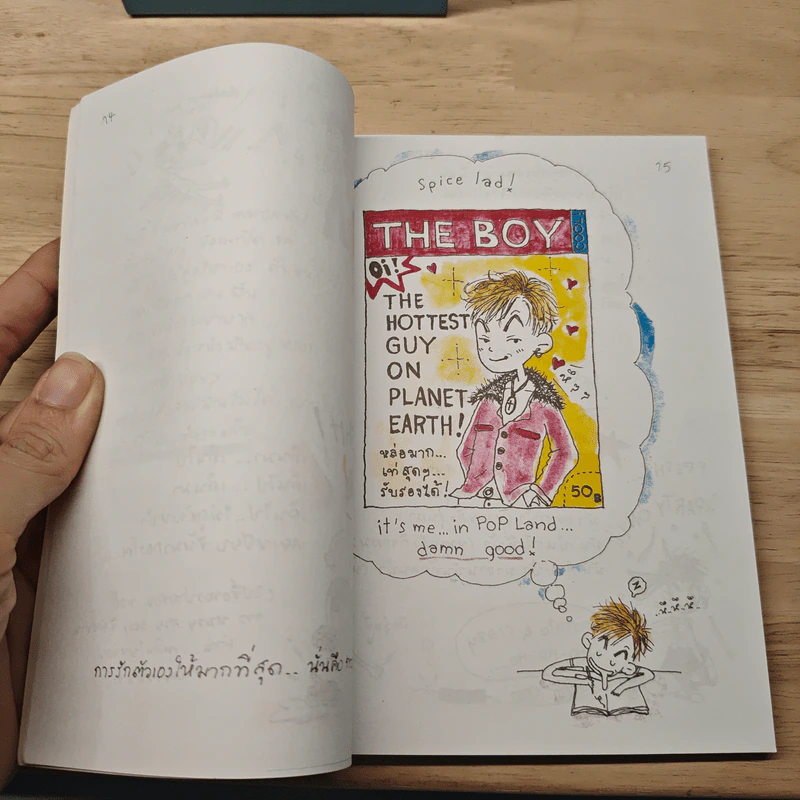 74
การรักตัวเองให้มากที่สุด... นั่นคือ
75
Spice lad!
THE BOY
Oi!
THE
HOTTEST
GUY
ON
PLANET
EARTH!
หล่อมาก...
เท่สุดๆ...
รับรองได้!
50฿
it's me... in POP Land...
damn good!
Z
..หึ..หึ..หึ..